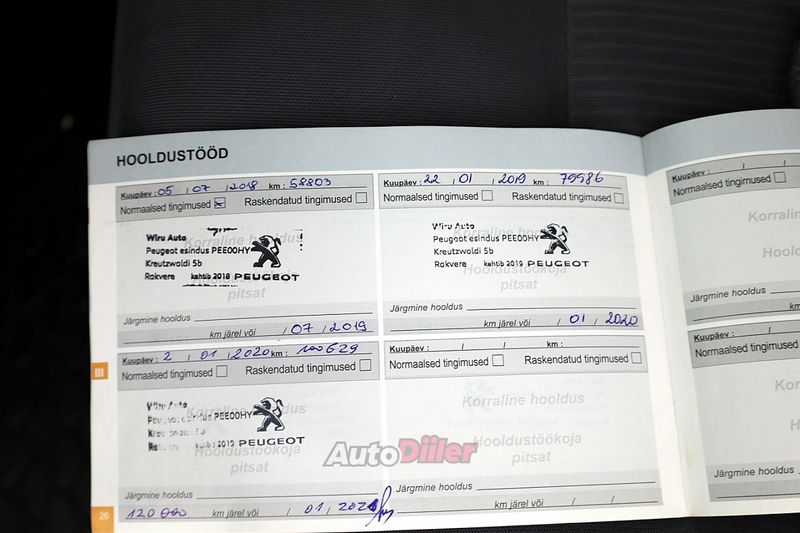 HOOLDUSTÖÖD
Kuupäev : 05 / 07 / 2018 km : 58803
Normaalsed tingimused Raskendatud tingimused
Korraline hooldus
Wiru Auto
Peugeot esindus PEE00HY
Kreutzwaldi 5b
Rakvere kehtib 2018 PEUGEOT
pitsat
Järgmine hooldus
km järel või / 07 / 2019
Kuupäev : 22 / 01 / 2019 km : 79986
Normaalsed tingimused Raskendatud tingimused
Wiru Auto
Peugeot esindus PEE00HY
Kreutzwaldi 5b
Rakvere kehtib 2019 PEUGEOT
Hooldustöökoja
pitsat
Järgmine hooldus
km järel või / 01 / 2020
Kuupäev : 2 / 01 / 2020 km : 100629
Normaalsed tingimused Raskendatud tingimused
Korraline hooldus
Wiru Auto
PEE00HY
2019 PEUGEOT
Hooldustöökoja
pitsat
Järgmine hooldus
120 000 km järel või / 01 / 2021
Kuupäev : / / km :
Normaalsed tingimused Raskendatud tingimused
Korraline hooldus
Hooldustöökoja
pitsat
Järgmine hooldus
km järel või / /
AutoDiiler
26
Kuupäev : / /
Normaalsed tingimused
Korraline
Hooldus
Järgmine hooldus
km
Kuupäev : / /
Normaalsed tingimused
Kor
Hoo
Järgmine hooldus